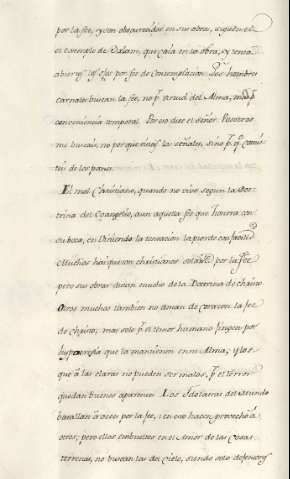 por la fee, y son obscurados en sus obras, siguiendo
el exemplo de Balaam, que caia en la obra, y tenia
abiertos los ojos por fee de Contemplacion. Los hombres
carnales buscan la fee, no por virtud del Alma, mas por
conveniencia temporal. Por eso dice el señor. Vosotros
me buscais, no por que visteis las señales, sino por que comis
teis de los panes.
El mal Christiano, quando no vive segun la Doc
trina del Evangelio, aun aquella fee que honrra con
su boca, en Viniendo la tentacion la pierde con facilidad
Muchos hai que son christianos solamente por la fee
pero sus obras distan mucho de la Doctrina de christo
Otros muchos tambien no aman de corazon la fee
de christo; mas solo por el temor humano fingen por
hypocresia que la mantienen en su Alma; y los
que à las claras no pueden ser malos, por el terror
quedan buenos aparentes. Los Idolatras del mundo
batallan à veces por la fee, i en eso hacen provecho à
otros; pero ellos embueltos en el Amor de las Cosas
terrenas, no buscan las del Cielo, siendo solo defensores